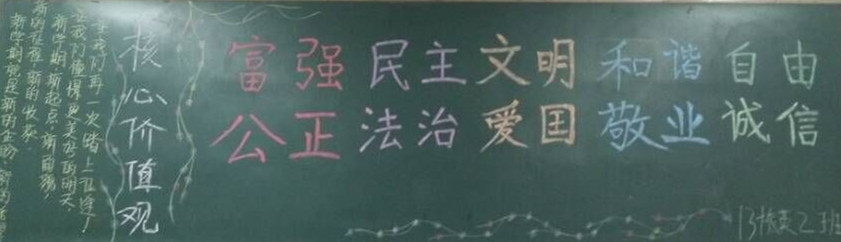 核心价值观
富强 民主 文明 和谐 自由
公正 法治 爱国 敬业 诚信
我们再一次踏上征途!
让我们憧憬更美好的明天.
新学期,新起点,新
新的征程,新的收获.
新学期就是新的企盼,新的
13 英2班